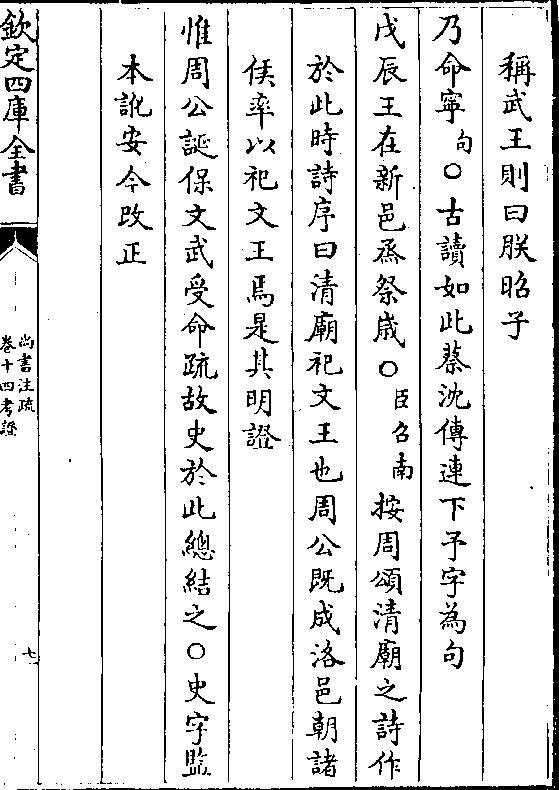 稱武王則曰朕昭子
乃命寧句○古讀如此蔡沈傳連下予字為句
戊辰王在新邑烝祭歲○臣召南按周頌清廟之詩作
於此時詩序曰清廟祀文王也周公既成洛邑朝諸
侯率以祀文王焉是其明證
惟周公誕保文武受命疏故史於此總結之○史字監
本訛安今改正
欽定四庫全書
尚書注疏
卷十四考證
七